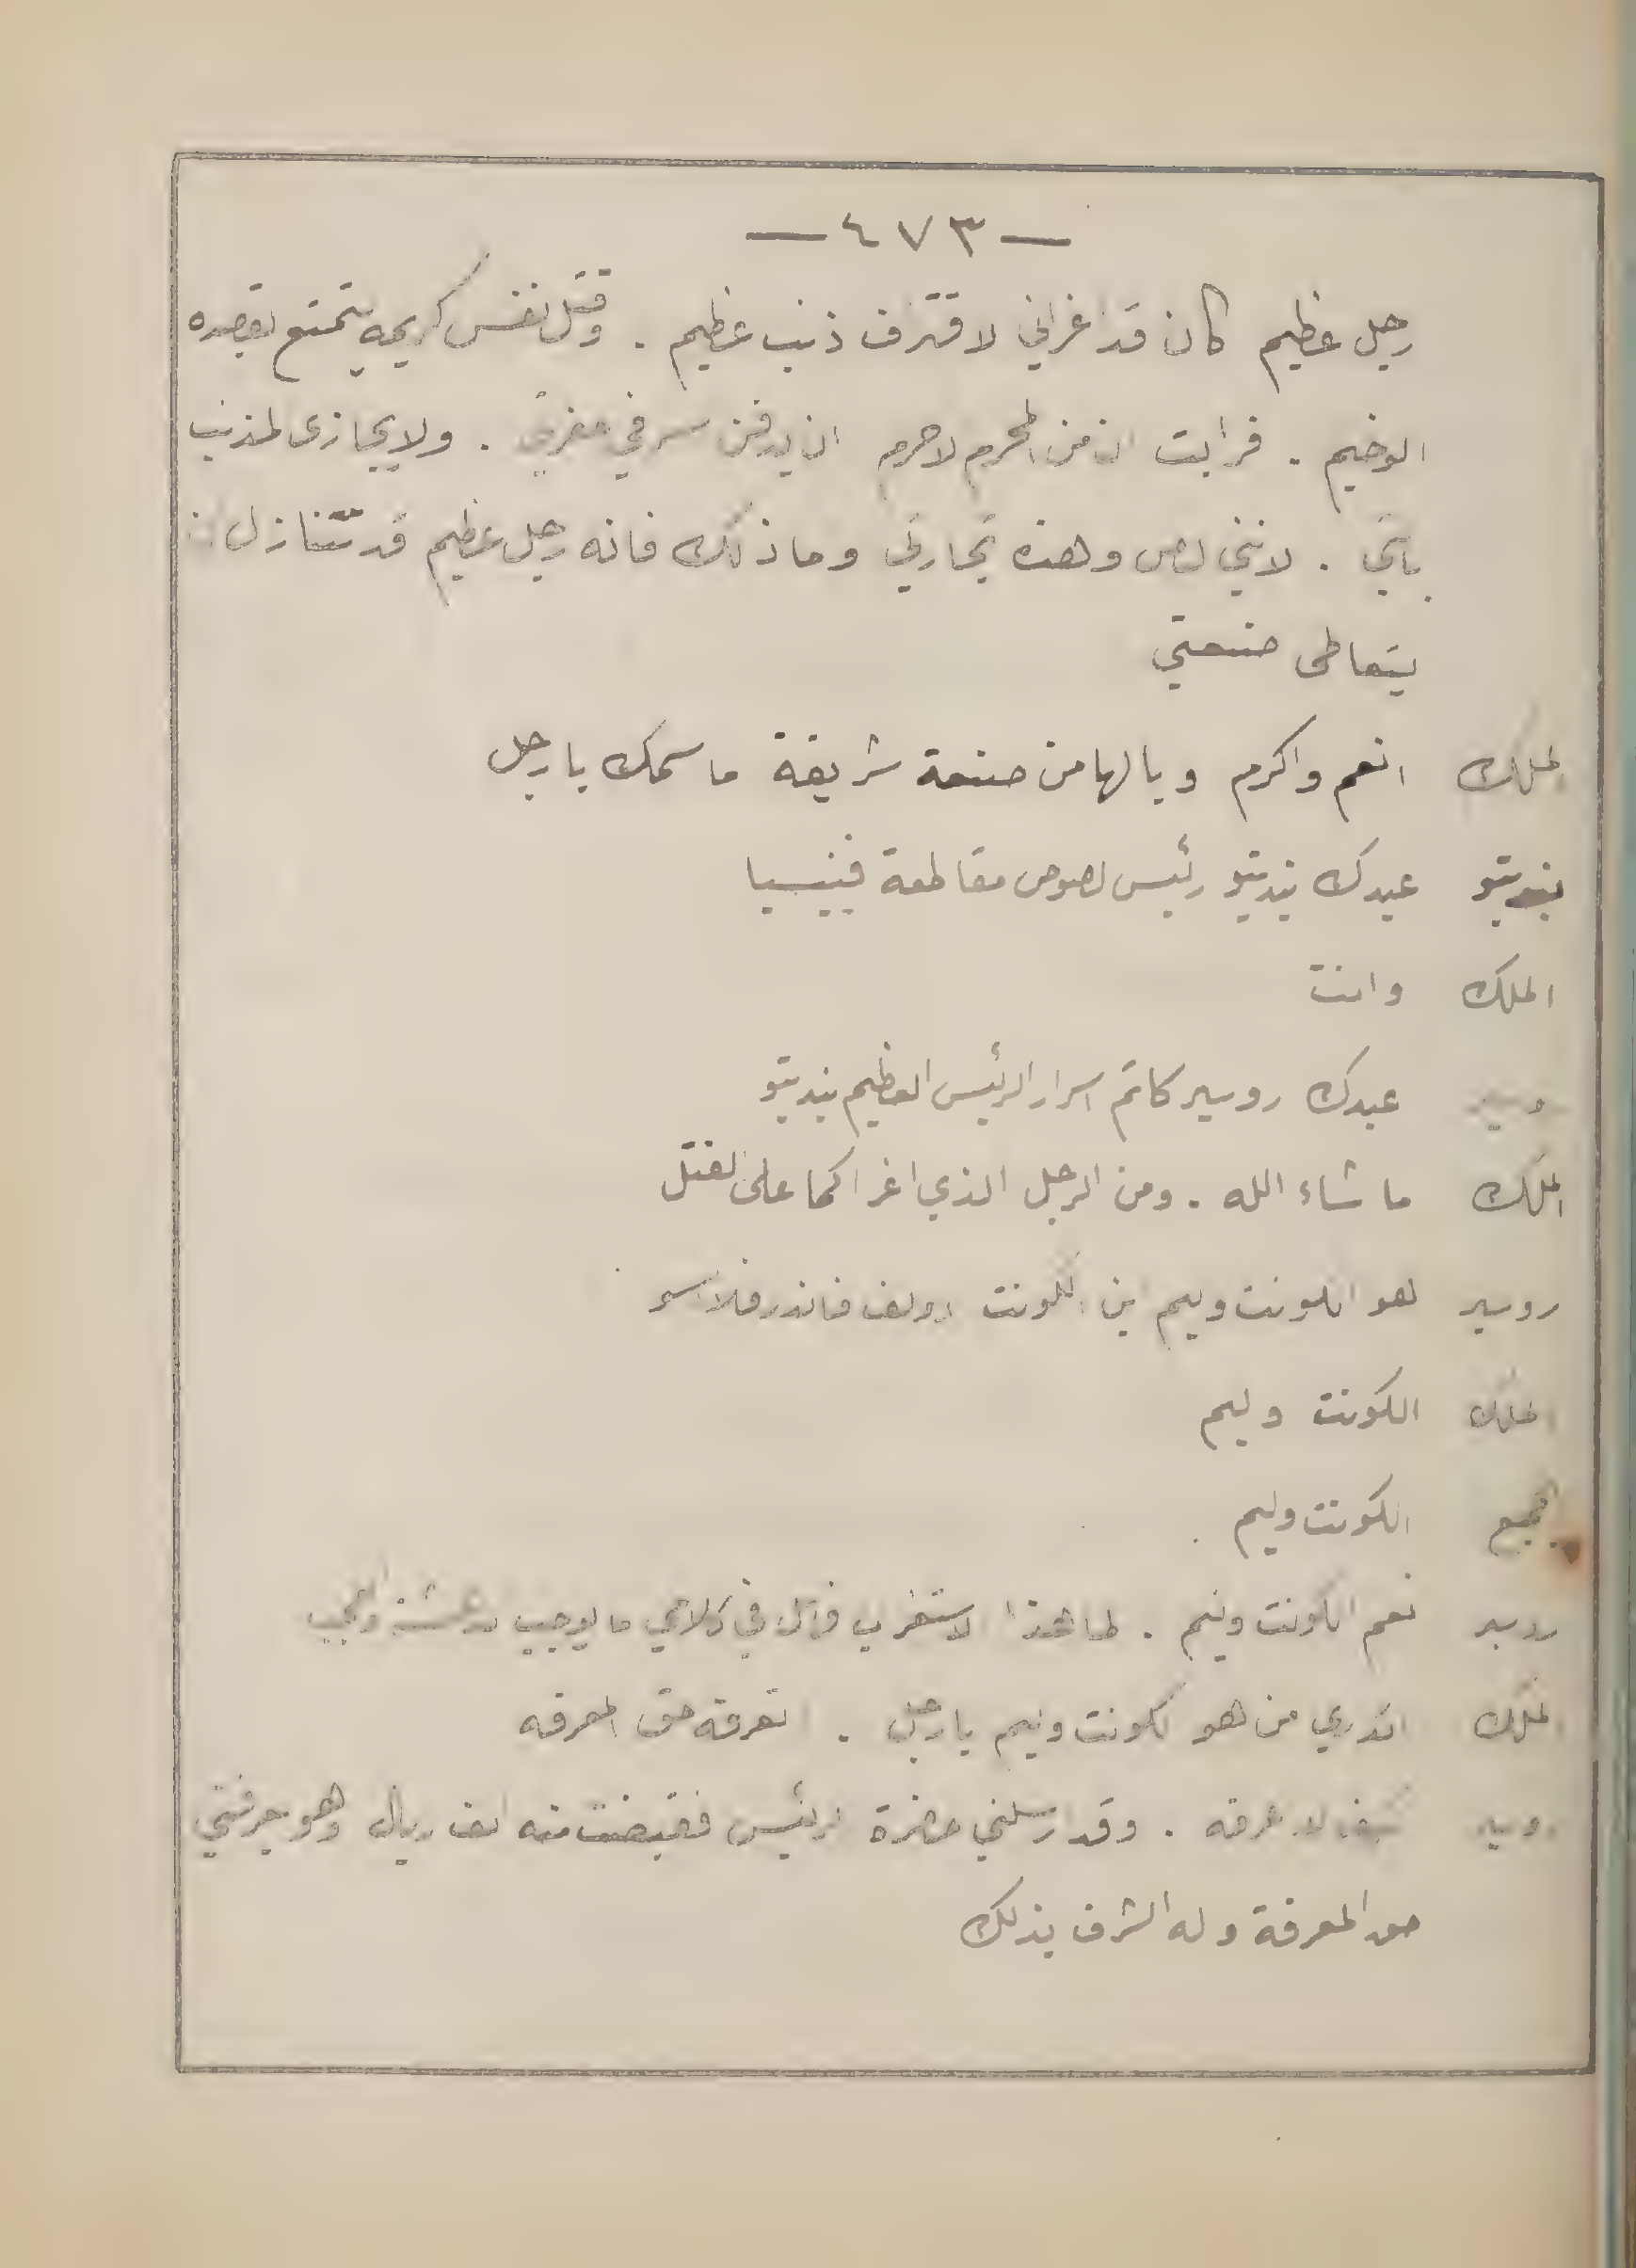 — ٤٧٣ —
رجل عظيم كان قد اغراني لاقتراف ذنب عظيم . وقتل نفس كريمه يتمتع بقصده
الوخيم . فرايت ان من المحرم لاجرم ان يدفن سر في . ولا يجازى المذنب
باثمي . لانني لص وهذه تجارتي وما ذلك فانه رجل عظيم قد تنازل ان
يتعاطى صنعتي
الملك انعم واكرم ويالها من صنعة شريفة ماسمك يا رجل
بنديتو عبدك بنديتو رئيس لصوص مقاطعة فينيسيا
الملك وانت
روبير عبدك روبير كاتم اسرار الرئيس العظيم بنديتو
الملك ما شاء الله . ومن الرجل الذي اغراكما على القتل
روبير هو الكونت وليم ابن الكونت رولف
الملك الكونت وليم
الجميع الكونت وليم .
روبير نعم الكونت وليم . لماذا الاستغراب في كلامي ما يوجب
الملك اتدري من هو الكونت وليم يا رجل . اتعرفه حق المعرفه
روبير كيف لا اعرفه . وقد ارسلني حضرة الرئيس فقبضت منه الف ريال وهو
حق المعرفة وله الشرف بذلك